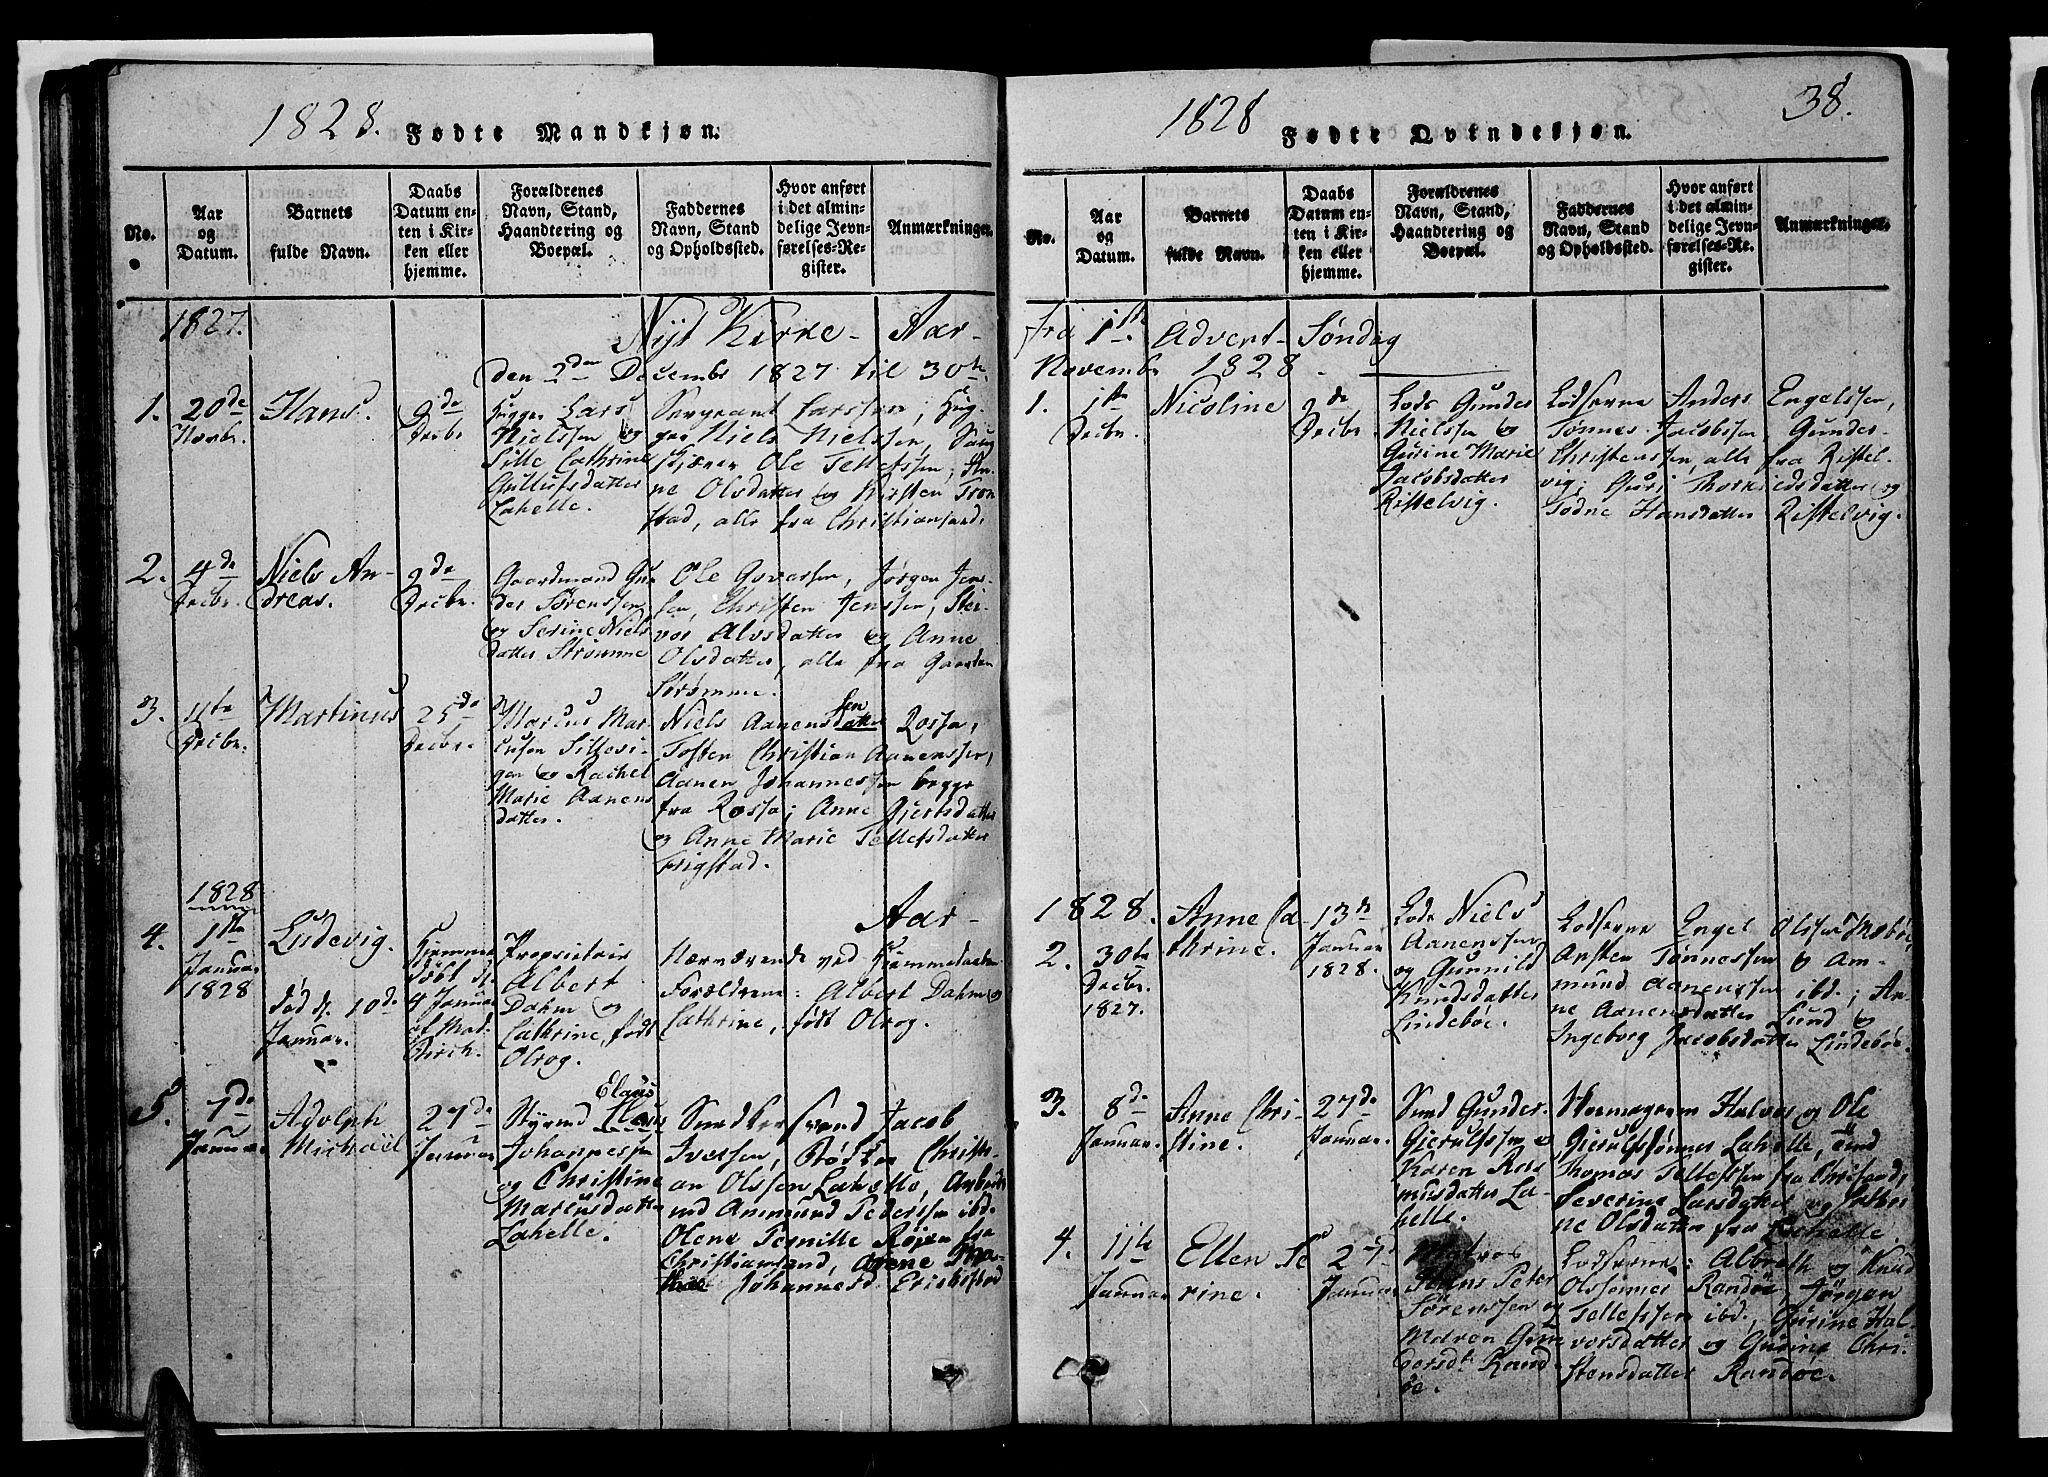 1828. Fødte Mandkjøn.
No.
Aar
og
Datum.
Barnets
fulde Navn.
Daabs
Datum en-
ten i Kir-
ken eller
hjemme.
Forældrenes
Navn, Stand,
Haandtering og
Boepæl.
Faddernes
Navn, Stand
og Opholdssted.
Hvor anført
i det almin-
delige Jevn-
førelses-Re-
gister.
Anmærkninger.
1827.
Nyt Kirke-Aar-
den 2den Decembr 1827 til 30te
1.
20de
Novbr.
Hans.
2de
Decbr.
Lars
Nielssen og
Sille Cathrine
Gullufsdatter
Lahelle.
Sergeant Larssen,
Niels Nielssen,
Ole Tellefssen, An-
ne Olsdatter og Kirsten Tron
stad, alle fra Christiansand.
2.
4de
Decbr.
Niels An-
dreas.
2de
Decbr.
Gaardmand Gun
der Sørenssen
og Serine Niels
datter Strømme
Ole Gvarssen, Jørgen Jens-
sen, Christen Jenssen, Sti-
vor Alvsdatter og Anne
Olsdatter, alle fra Gaarden
Strømme.
3.
11te
Decbr.
Martinus
25de
Decbr.
Marcus Mar-
cusen Sillevi-
gen og Rachel
Marie Aanens
datter.
Niels Aanensdatter sen Rossø,
Tosten Christian Aanenssen,
Aanen Johannessen begge
fra Rossø; Anne Gjertsdatter
og Anne Marie Tellefsdatter
Frigstad.
1828
Aar-
4.
1ste
Januar
1828
Ludevig.
død d. 10de
Januar.
Hjemme
døbt d.
4 Januar
af Mad.
Birch.
Proprietair
Albert
Dahm og
Cathrine, født
Olrog.
Nærværende ved Hjemmedaaben
Forældrene: Albert Dahm og
Cathrine, født Olrog.
5.
7de
Januar
Adolph
Michaël
27de
Januar
Styrmd Claus
Claus
Johannessen
og Christine
Marcusdatter
Lahelle.
Smedkersvend Jacob
Iverssen, Bødker Christi-
an Olssen Lahelle, Arbeids
md Ammund Pederssen ibd.
Olene Pernille Røien fra
Christiansand,
Johannesd. Eriksstad
1828 Fødte Qvindekjøn.
38.
No.
Aar
og
Datum.
Barnets
fulde Navn.
Daabs
Datum en-
ten i Kir-
ken eller
hjemme.
Forældrenes
Navn, Stand,
Haandtering og
Boepæl.
Faddernes
Navn, Stand
og Opholdssted.
Hvor anført
i det almin-
delige Jevn-
førelses-Re-
gister.
Anmærkninger.
fra 1ste Advent-Søndag
Novembr 1828.
1.
1ste
Decbr.
Nicoline
2de
Decbr.
Lods Gunder
Nielssen og
Gurine Marie
Jacobsdatter
Ristelvig.
Lodserne Anders Engelssen,
Tønnes Jacobssen, Gunder
Christenssen, alle fra Ristel-
vig; Guri Thorkildsdatter og
Todne Hansdatter Ristelvig.
1828.
2.
30te
Decbr.
1827.
Anne Ca-
thrine.
13de
Januar
1828.
Lods Niels
Aanenssen
og Gunnild
Knudsdatter
Lindebøe.
Lodserne Engel Olssen Mebøe,
Aysten Tønnessen & Am-
mund Aanenssen ibd.; An-
ne Aanensdatter Lund og
Ingeborg Jacobsdatter Lindebøe.
3.
8de
Januar.
Anne Chri-
stine.
27de
Januar.
Smed Gunder
Gjerulfssen og
Karen Ras
musdatter La-
helle.
Halvor og Ole
Gjerulfssønner Lahelle,
Thomas Tellefssen fra Chrisand,
Severine Larsdatter og
ne Olsdatter fra Lahelle.
4.
11te
Januar
Ellen Se
rine.
27
Januar
Matros
Hans Peter
Sørenssen og
Maren Gun
dersdt. Rand
øe.
Lodserne: Albreth og Knud
Olssønner Randøe, Jørgen
Tellefssen ibd., Gurine Hal
vorsdatter og Gurine Chri-
stensdatter Randøe.